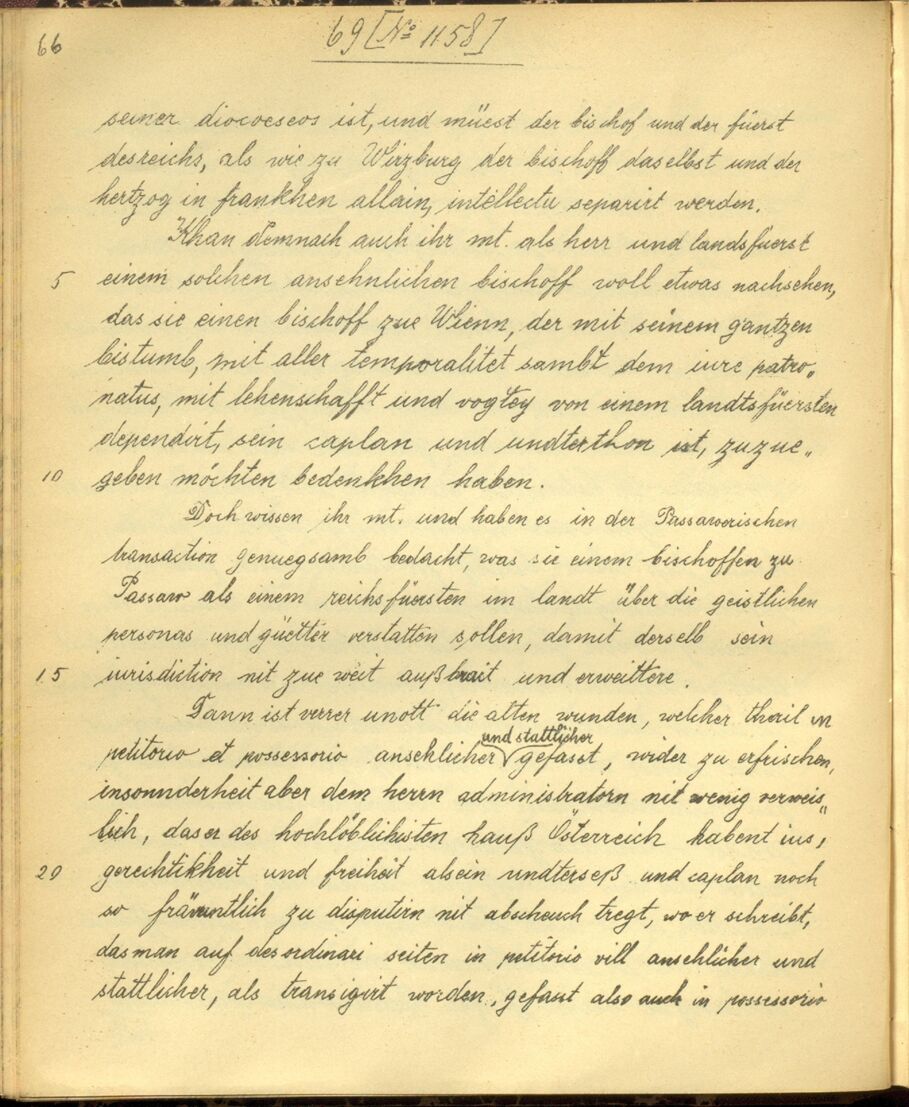 66
69 [Nº 1158]
seiner dioceseos ist, und müest der bischof und der füerst
des reichs, als wie zu Wirzburg der bischoff daselbst und der
hertzog in frankhen allain, intellectu separirt werden.
Khan demnach auch ihr mt. als herr und landsfüerst
5 einem solchen ansehnlichen bischoff woll etwas nachsehen,
das sie einen bischoff zue Wienn, der mit seinem gantzen
bistumb, mit aller temporalitet sambt dem iure patro„
natus, mit lehenschafft und vogtey von einem landtsfüersten
dependirt, sein caplan und undterthon ist, zuzue„
10 geben möchten bedenkhen haben.
Doch wissen ihr mt. und haben es in der Passawerischen
transaction genuegsamb bedacht, was sie einem bischoffen zu
Passaw als einem reichsfüersten im landt über die geistlichen
personas und güetter verstatten sollen, damit derselb sein
15 iurisdiction nit zue weit außbrait und erweittere.
Dann ist verrer unott die alten wunden, welcher thail in
petitorio et possessorio ansehlicher und stattlicher gefasst, wider zu erfrischen,
insonnderheit aber dem herrn administratorn nit wenig verweis„
lich, das er des hochlöblichisten hauß Österreich habent ius,
20 gerechtikheit und freiheit als ein undterseß und caplan noch
so zu disputirn nit abscheuch tregt, wo er schreibt,
das man auf des ordinari seiten in petitorio vill ansehlicher und
stattlicher, als transigirt worden, gefasst also auch in possessorio